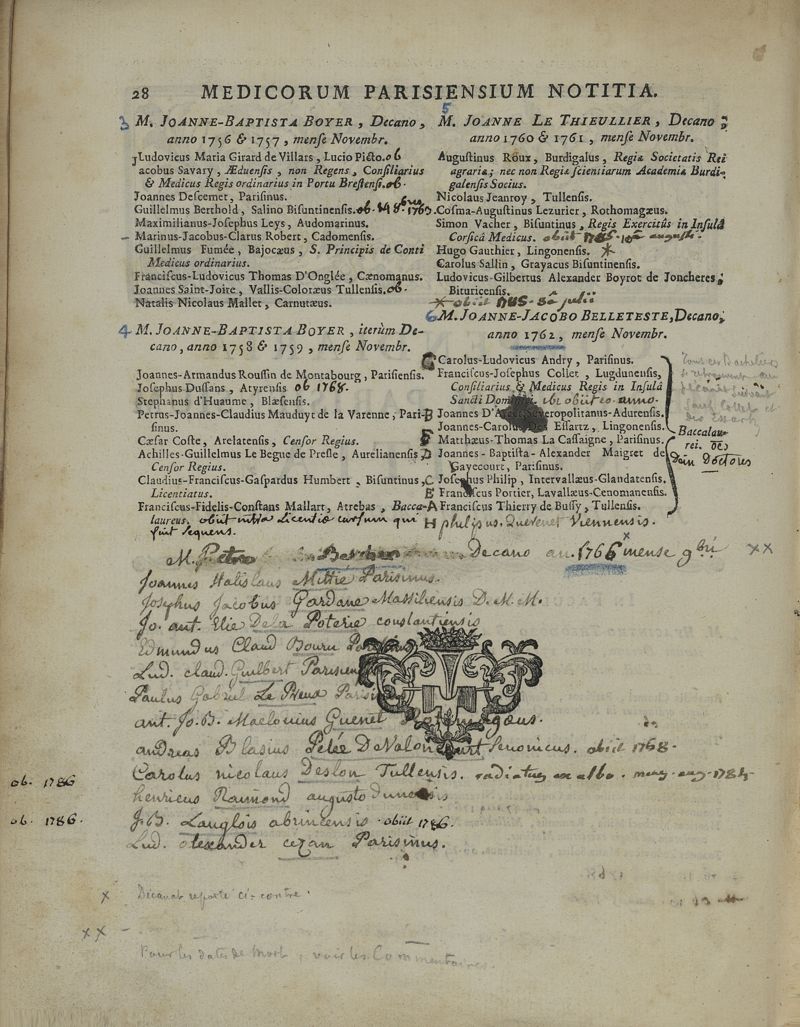 28 MEDICORUM PARISIENSIUM NOTITIA.
3 M. JOANNE-BAPTISTA BOYER, Decano,
anno 1756 & 1757, menſe Novembr.
Ludovicus Maria Girard de Villars, Lucio Picto. ob
Jacobus Savary, Æduenſis, non Regens, Conſiliarius
& Medicus Regis ordinarius in Portu Breſtenſi. ob.
Joannes Deſcemet, Pariſinus.
Guillelmus Berthold, Salino Biſuntinenſis. ob.
Maximilianus-Joſephus Leys, Audomarinus.
Marinus-Jacobus-Clarus Robert, Cadomenſis.
Guillelmus Fumée, Bajocæus, S. Principis de Conti
Medicus ordinarius.
Franciſcus-Ludovicus Thomas D'Onglée, Cænomanus.
Joannes Saint-Joire, Vallis-Coloræus Tullenſis. ob.
Natalis Nicolaus Mallet, Carnutæus.
4 M. JOANNE-BAPTISTA BOYER, iterùm De-
cano, anno 1758 & 1759, menſe Novembr.
Joannes-Armandus Rouſſin de Montabourg, Pariſienſis.
Joſephus Duſſans, Atyrenſis ob 1768.
Stephanus d'Huaume, Blæſenſis.
Petrus-Joannes-Claudius Mauduyt de la Varenne, Pari-
ſinus.
Cæſar Coſte, Arelatenſis, Cenſor Regius.
Achilles-Guillelmus Le Begue de Preſle, Aurelianenſis,
Cenſor Regius.
Claudius-Franciſcus-Gaſpardus Humbert, Biſuntinus,
Licentiatus.
Franciſcus-Fidelis-Conſtans Mallart, Atrebas, Bacca-
laureus, obiit intra licentiæ curſum qui
fuit ſequens.
5
M. JOANNE LE THIEULLIER, Decano;
anno 1760 & 1761, menſe Novembr.
Auguſtinus Roux, Burdigalus, Regiæ Societatis Rei
agrariæ; nec non Regiæ ſcientiarum Academiæ Burdi-
galenſis Socius.
Nicolaus Jeanroy, Tullenſis.
Coſma-Auguſtinus Lezurier, Rothomagæus.
Simon Vacher, Biſuntinus, Regis Exercitûs in Inſulâ
Corſicâ Medicus. obiit
Hugo Gauthier, Lingonenſis.
Carolus Sallin, Grayacus Biſuntinenſis.
Ludovicus-Gilbertus Alexander Boyrot de Joncheres;
Bituricenſis.
obiit julii
6 M. JOANNE-JACOBO BELLETESTE, Decano;
anno 1762, menſe Novembr.
G Carolus-Ludovicus Andry, Pariſinus.
Franciſcus-Joſephus Collet, Lugdunenſis,
Conſiliarius & Medicus Regis in Inſulâ
Sancti ibi obiit eo anno
B Joannes
Eſſartz, Lingonenſis.
F Matthæus-Thomas La Caſſaigne, Pariſinus.
D Joannes-Baptiſta-Alexander Maigret de
Gayecourt, Pariſinus.
C Joſephus Philip, Intervallæus-Glandatenſis.
E Franciſcus Portier, Lavallæus-Cenomanenſis.
A Franciſcus Thierry de Buſſy, Tullenſis.
H philippus Viennensis.
Baccalau-
rei.
Dein Doctores
M. Petro Bercher Decano an. 1766 mense 9bri xx
Joannes Stalislaus Mittié Parisinus.
Josephus Jacobus Gardane Massiliensis D.M.M.
Jo. ant. De la Poterie constantiensis
Edmundus Claud Bourru
Lud. claud. Guilbert Parisien
Paulus Gabriel Le Preux Parisi
ant. Jo. B. Maclovius Guenet
andreas Blasius Petée Senonicus. obiit 1768.
Carolus nicolaus Deslon Tullensis. radiatus ex albo.
ob. 1786 henricus Raimond augustodunensis
ob. 1786. J.B. Langlois abrincensis obiit 1786.
Lud. cezan Parisinus.
x Décanat reporté ci-contre.
xx Pour les dates de mort, voir les Commentaires